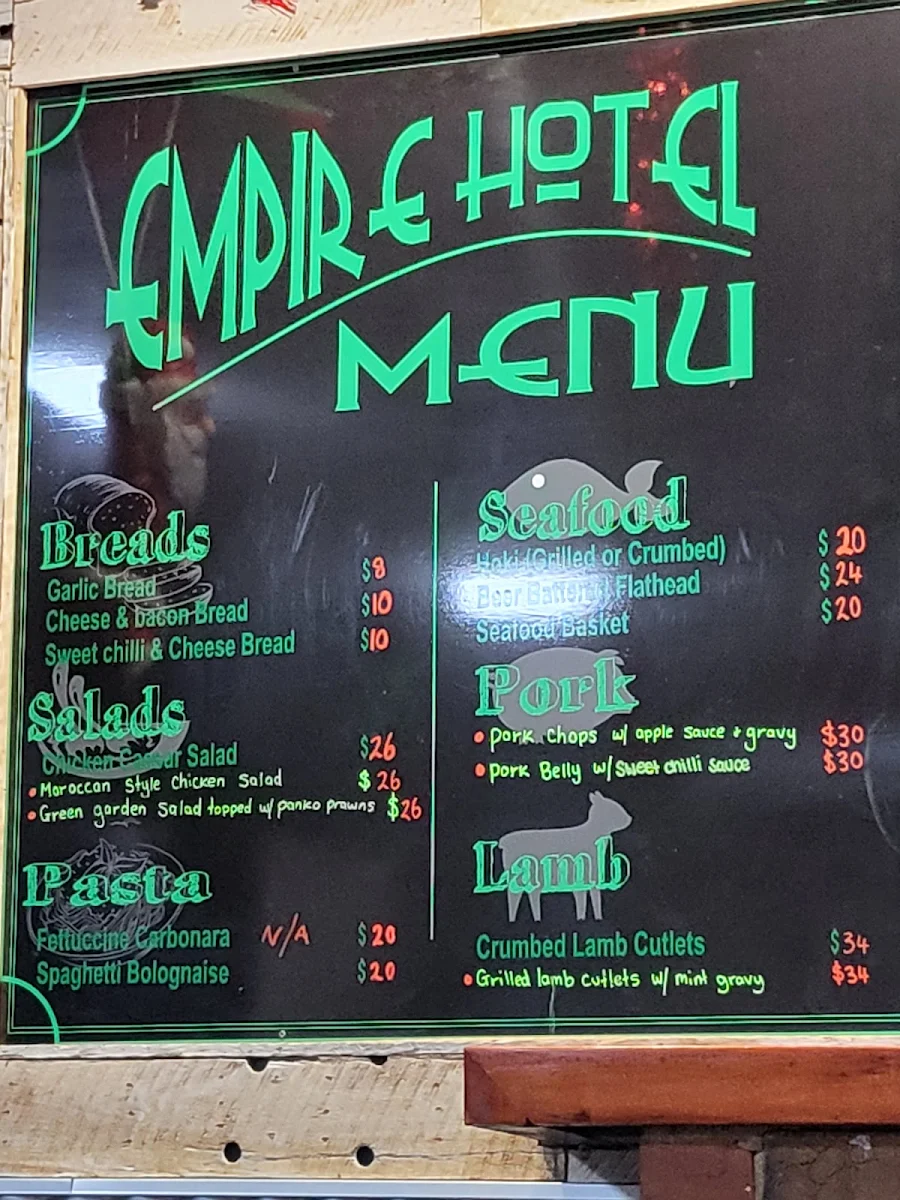 EMPIRE HOTEL
MENU
Breads
Garlic Bread $8
Cheese & bacon Bread $10
Sweet chilli & Cheese Bread $10
Salads
Chicken Caesar Salad $26
• Moroccan Style Chicken Salad $26
• Green garden Salad topped w/ panko prawns $26
Pasta
Fettuccine Carbonara N/A $20
Spaghetti Bolognaise $20
Seafood
Hoki (Grilled or Crumbed) $20
Beer Battered Flathead $24
Seafood Basket $20
Pork
• Pork Chops w/ apple sauce + gravy $30
• Pork Belly w/ Sweet chilli sauce $30
Lamb
Crumbed Lamb Cutlets $34
• Grilled lamb cutlets w/ mint gravy $34